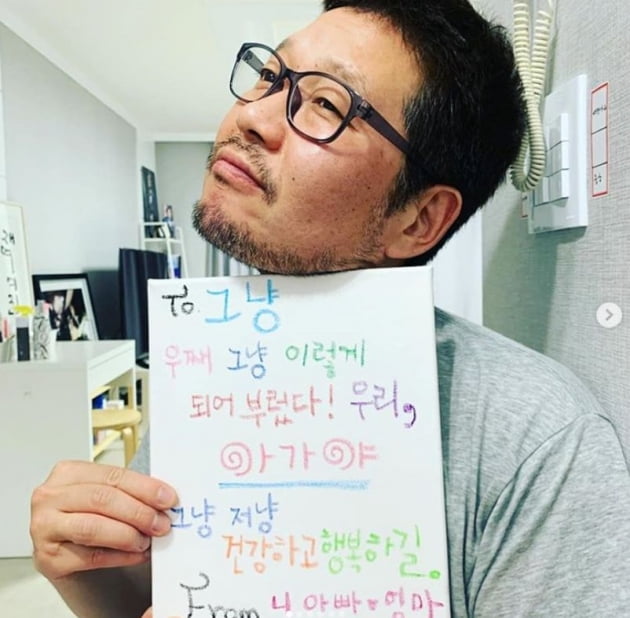 To. 그냥
우째 그냥 이렇게
되어 부렀다! 우리,
아가야
그냥 저냥
건강하고 행복하길.
From 니 아빠 ♥ 엄마